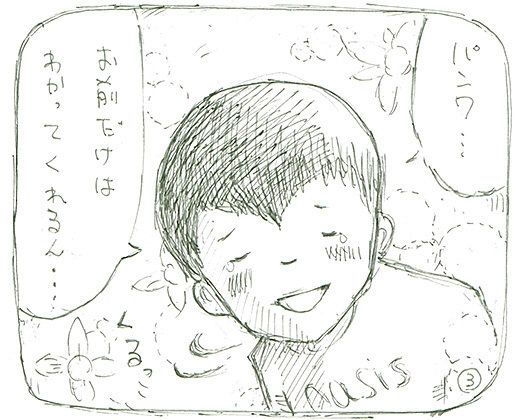 パンワ…
お前だけは
わかってくれるん….
くるっ
oasis
③